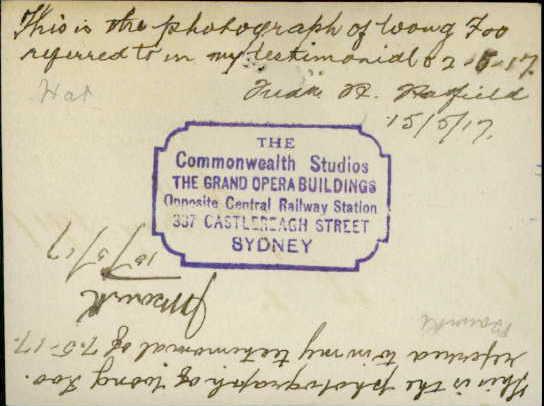 This is the photograph of Wong Foo
referred to in my testimonial of 2-5-17.
Hat
Fredk H. Hatfield
15/5/17.
THE
Commonwealth Studios
THE GRAND OPERA BUILDINGS
Opposite Central Railway Station
337 CASTLEREAGH STREET
SYDNEY
This is the photograph of Wong Foo.
referred to in my testimonial of 7-5-17.
15/5/17